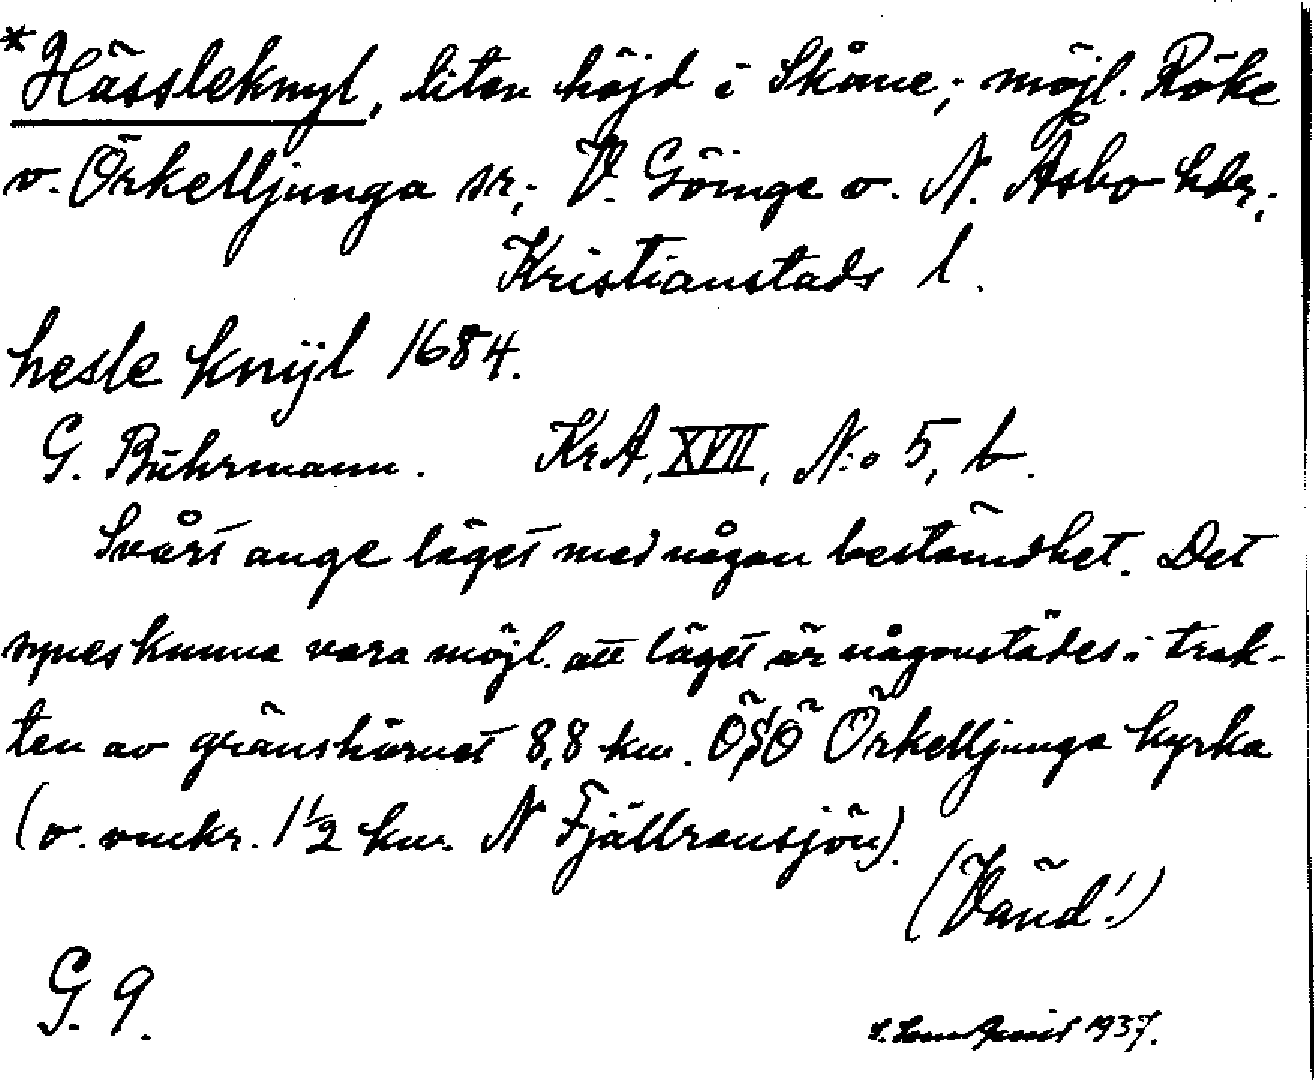 *Hässleknyl, liten höjd i Skåne; möjl. Röke
o. Örkelljunga sr; V. Göinge o. N. Åsbo hdr;
Kristianstads l.
hesle knÿl 1684.
G. Buhrmann. KrA, XVII, N:o 5, b.
Svårt ange läget med någon bestämdhet. Det
synes kunna vara möjl. att läget är någonstädes i trak-
ten av gränshörnet 8,8 km. ÖSÖ Örkelljunga kyrka
(o. omkr. 1½ km. N Fjällransjön).
(Vänd!)
G. 9.
1937.